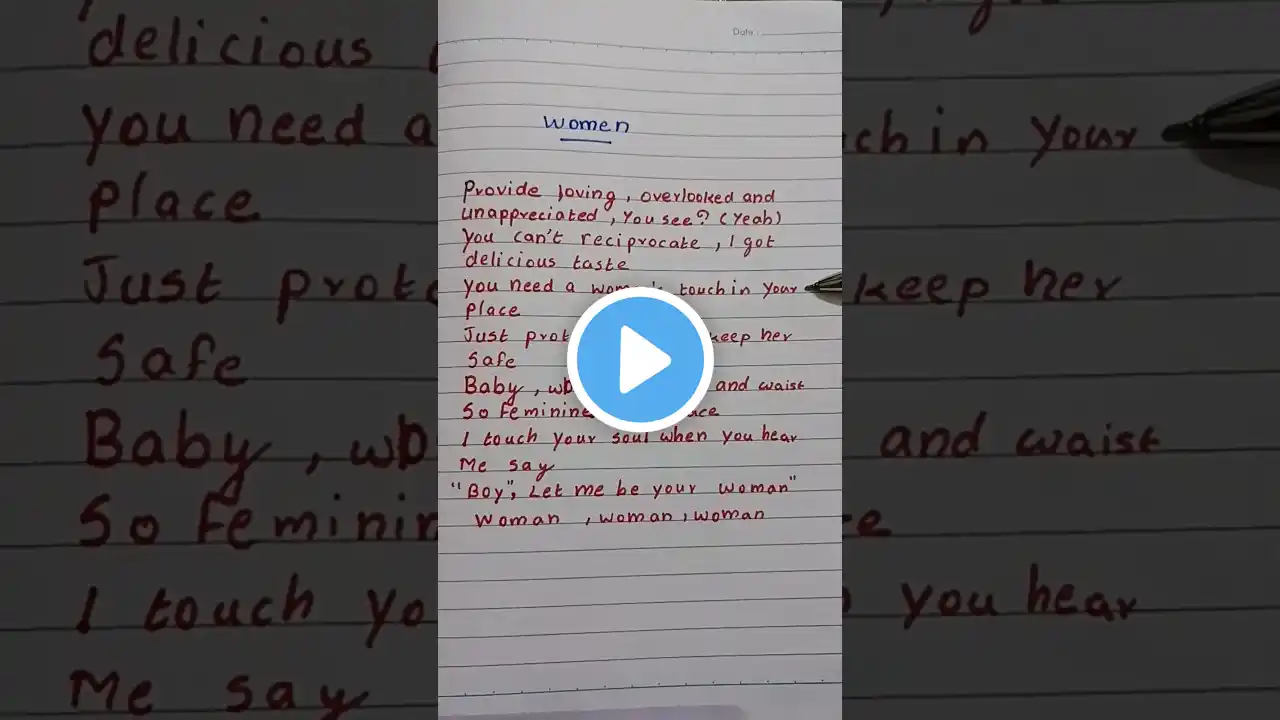 Date:
Women
Provide loving, overlooked and
unappreciated, You see? (Yeah)
You can't reciprocate, I got
delicious taste
You need a touch in Your
place
Just keep her
Safe
Baby, and waist
So Feminine
I touch your soul when you hear
Me say
"Boy", Let me be your woman"
Woman, woman, woman